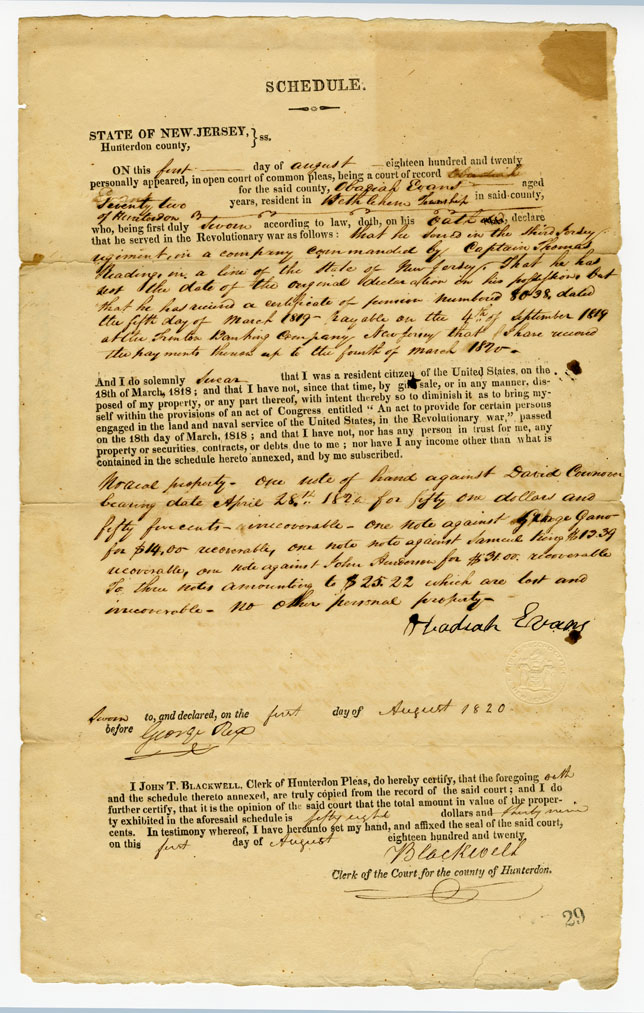 SCHEDULE.
STATE OF NEW-JERSEY,
Hunterdon county, }ss.
ON this first day of august eighteen hundred and twenty
personally appeared, in open court of common pleas, being a court of record
for the said county, Obadiah Evans aged
Seventy two years, resident in Bethlehem Township in said county,
of Hunterdon
who, being first duly Sworn according to law, doth, on his Oath, declare
that he served in the Revolutionary war as follows: that he served in the third Jersey
regiment, in a company commanded by Captain Thomas
Reading, in a line of the State of New Jersey, That he has
not the date of the original declaration on his possession, but
that he has received a certificate of pension numbered 8038, dated
the fifth day of March 1819 - payable on the 4th of September 1819
at the Trenton Banking Company New Jersey that I have received
the payments thereon up to the fourth of March 1820 -
And I do solemnly Swear that I was a resident citizen of the United States, on the
18th of March, 1818; and that I have not, since that time, by gift sale, or in any manner, dis-
posed of my property, or any part thereof, with intent thereby so to diminish it as to bring my-
self within the provisions of an act of Congress, entitled "An act to provide for certain persons
engaged in the land and naval service of the United States, in the Revolutionary war," passed
on the 18th day of March, 1818; and that I have not, nor has any person in trust for me, any
property or securities, contracts, or debts due to me; nor have I any income other than what is
contained in the schedule hereto annexed, and by me subscribed.
No real property - One note of hand against David
bearing date April 28th 1820 for fifty one dollars and
fifty five cents - irrecoverable - one note against George Gano
for $14.00 recoverable, one note note against Samuel King $13.39
recoverable, one note against John Anderson for $31.00. recoverable
To three notes amounting to $25.22 which are lost and
irrecoverable - No other personal property -
Obadiah Evans
Sworn to, and declared, on the first day of August 1820
before George Rea
I JOHN T. BLACKWELL, Clerk of Hunterdon Pleas, do hereby certify, that the foregoing oath
and the schedule thereto annexed, are truly copied from the record of the said court; and I do
further certify, that it is the opinion of the said court that the total amount in value of the proper-
ty exhibited in the aforesaid schedule is fifty eight dollars and thirty nine
cents. In testimony whereof, I have hereunto set my hand, and affixed the seal of the said court,
on this first day of August eighteen hundred and twenty
Blackwell
Clerk of the Court for the county of Hunterdon.
29